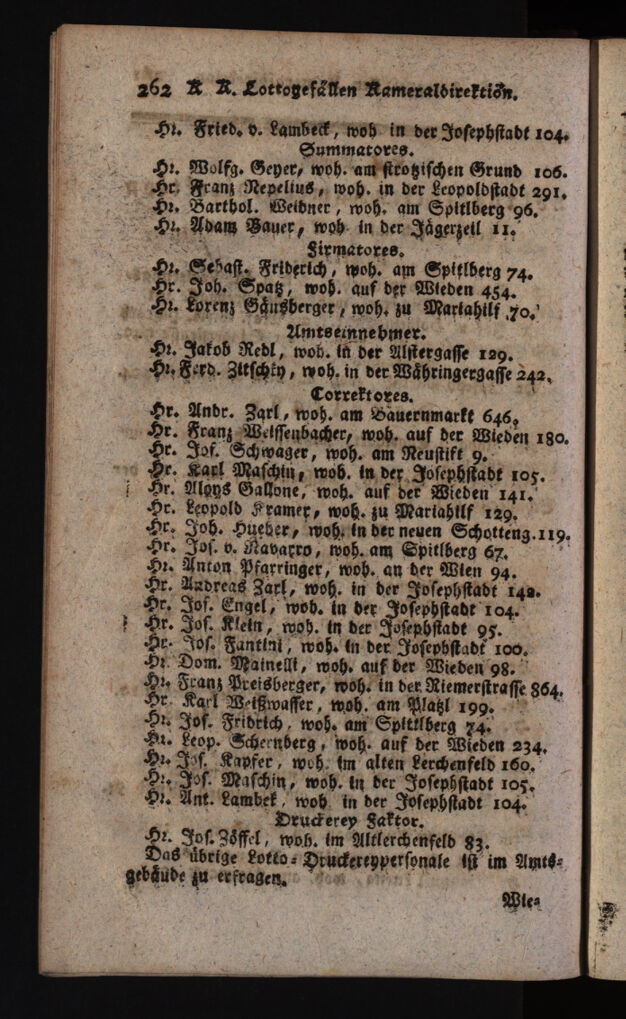 262 K. K. Lottogefällen Kameraldirektion.
Hr. Fried. v. Lambeck, woh in der Josephstadt 104.
Summatores.
Hr. Wolfg. Geyer, woh. am strotzischen Grund 106.
Hr. Franz Repelius, woh. in der Leopoldstadt 291.
Hr. Barthol. Weidner, woh. am Spitlberg 96.
Hr. Adam Bauer, woh. in der Jägerzeil 11.
Firmatores.
Hr. Sebast. Friderich, woh. am Spitlberg 74.
Hr. Joh. Spatz, woh. auf der Wieden 454.
Hr. Lorenz Gänsberger, woh. zu Mariahilf 70.
Amtseinnehmer.
Hr. Jakob Redl, woh. in der Alstergasse 129.
Hr. Ferd. Zitschky, woh. in der Währingergasse 242.
Correktores.
Hr. Andr. Zarl, woh. am Bauernmarkt 646.
Hr. Franz Weissenbacher, woh. auf der Wieden 180.
Hr. Jos. Schwager, woh. am Neustift 9.
Hr. Karl Maschin, woh. in der Josephstadt 105.
Hr. Aloys Gallone, woh. auf der Wieden 141.
Hr. Leopold Kramer, woh. zu Mariahilf 129.
Hr. Joh. Hueber, woh. in der neuen Schotteng. 119.
Hr. Jos. v. Navarro, woh. am Spitlberg 67.
Hr. Anton Pfarringer, woh. an der Wien 94.
Hr. Andreas Zarl, woh. in der Josephstadt 142.
Hr. Jos. Engel, woh. in der Josephstadt 104.
Hr. Jos. Klein, woh. in der Josephstadt 95.
Hr. Jos. Fantini, woh. in der Josephstadt 100.
Hr. Dom. Mainelli, woh. auf der Wieden 98.
Hr. Franz Preisberger, woh. in der Riemerstrasse 864.
Hr. Karl Weißwasser, woh. am Platzl 199.
Hr. Jos. Fridrich, woh. am Spittlberg 74.
Hr. Leop. Schernberg, woh. auf der Wieden 234.
Hr. Jos. Kapfer, woh. im alten Lerchenfeld 160.
Hr. Jos. Maschin, woh. in der Josephstadt 105.
Hr. Ant. Lambek, woh in der Josephstadt 104.
Druckerey Faktor.
Hr. Jos. Zöffel, woh. im Altlerchenfeld 83.
Das übrige Lotto-Druckereypersonale ist im Amts-
gebäude zu erfragen.
Wie-